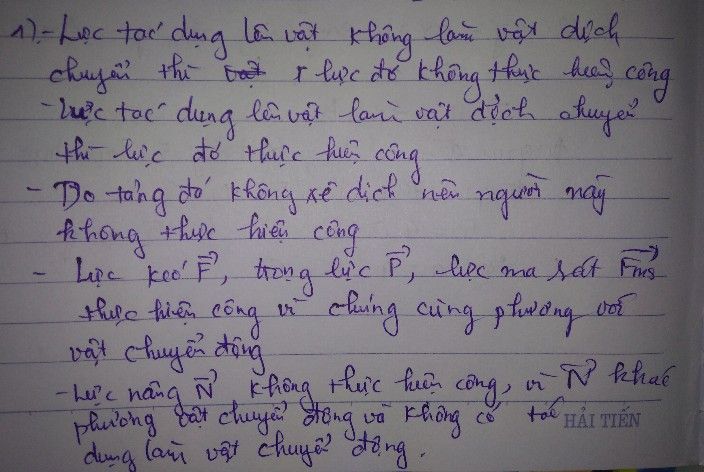 1). - Lực tác dụng lên vật không làm vật dịch
chuyển thì lực đó không thực hiện công
- Lực tác dụng lên vật làm vật dịch chuyển
thì lực đó thực hiện công
- Do tảng đó không xê dịch nên người này
không thực hiện công
- Lực kéo F, trọng lực P, lực ma sát Fms
thực hiện công vì chúng cùng phương với
vật chuyển động
- Lực nâng N không thực hiện công, vì N khác
phương vật chuyển động và không có tác
HẢI TIẾN
dụng làm vật chuyển động.